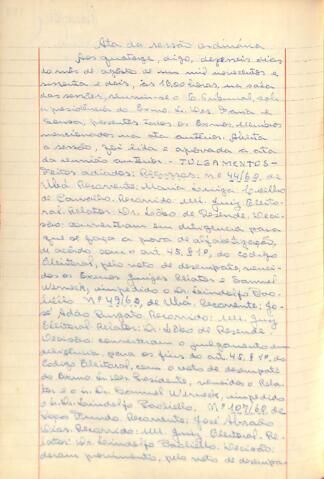 Ata da sessão ordinária
Aos quatorze, digo, dezesseis dias
do mês de agosto de mil novecentos e
sessenta e dois, às 18,00 horas, na sala
das sessões, reuniu-se o E. Tribunal, sob
a presidência do Exmo. Sr. Des. Faria de
Sousa, presentes todos os Exmos. Membros
mencionados na ata anterior. Aberta
a sessão, foi lida e aprovada a ata
da reunião anterior. - JULGAMENTOS -
Feitos adiados: Recursos: nº 44/62, de
Ubá. Recorrente: Maria Luiza
de Carvalho. Recorrido: MM. Juiz Eleito-
ral. Relator: Dr. João de Rezende. Deci-
são: converteram em diligência para
que se faça a prova de alfabetização,
de acordo com o art. 45, § 1º, do Codigo
Eleitoral, pelo voto de desempate, venci-
dos os Exmos. Juizes Relator e Samuel
Werneck, impedido o Dr. Lindolfo Pao-
liello. Nº 49/62, de Ubá. Recorrente: Jo-
sé Adão. Recorrido: MM. Juiz
Eleitoral. Relator: Dr. João de Rezende.
Decisão: converteram o julgamento em
diligência, para os fins do art. 45, § 1º, do
Codigo Eleitoral, com o voto de desempate
do Exmo. Sr. Des. Presidente, vencidos o Rela-
tor e o Dr. Samuel Werneck, impedido
o Dr. Lindolfo Paoliello. Nº 107/62, de
Passo Fundo. Recorrente: José Abrahão
Dias. Recorrido: MM. Juiz Eleitoral. Re-
lator: Dr. Lindolfo Paoliello. Decisão:
deram provimento, pelo voto de desempa-